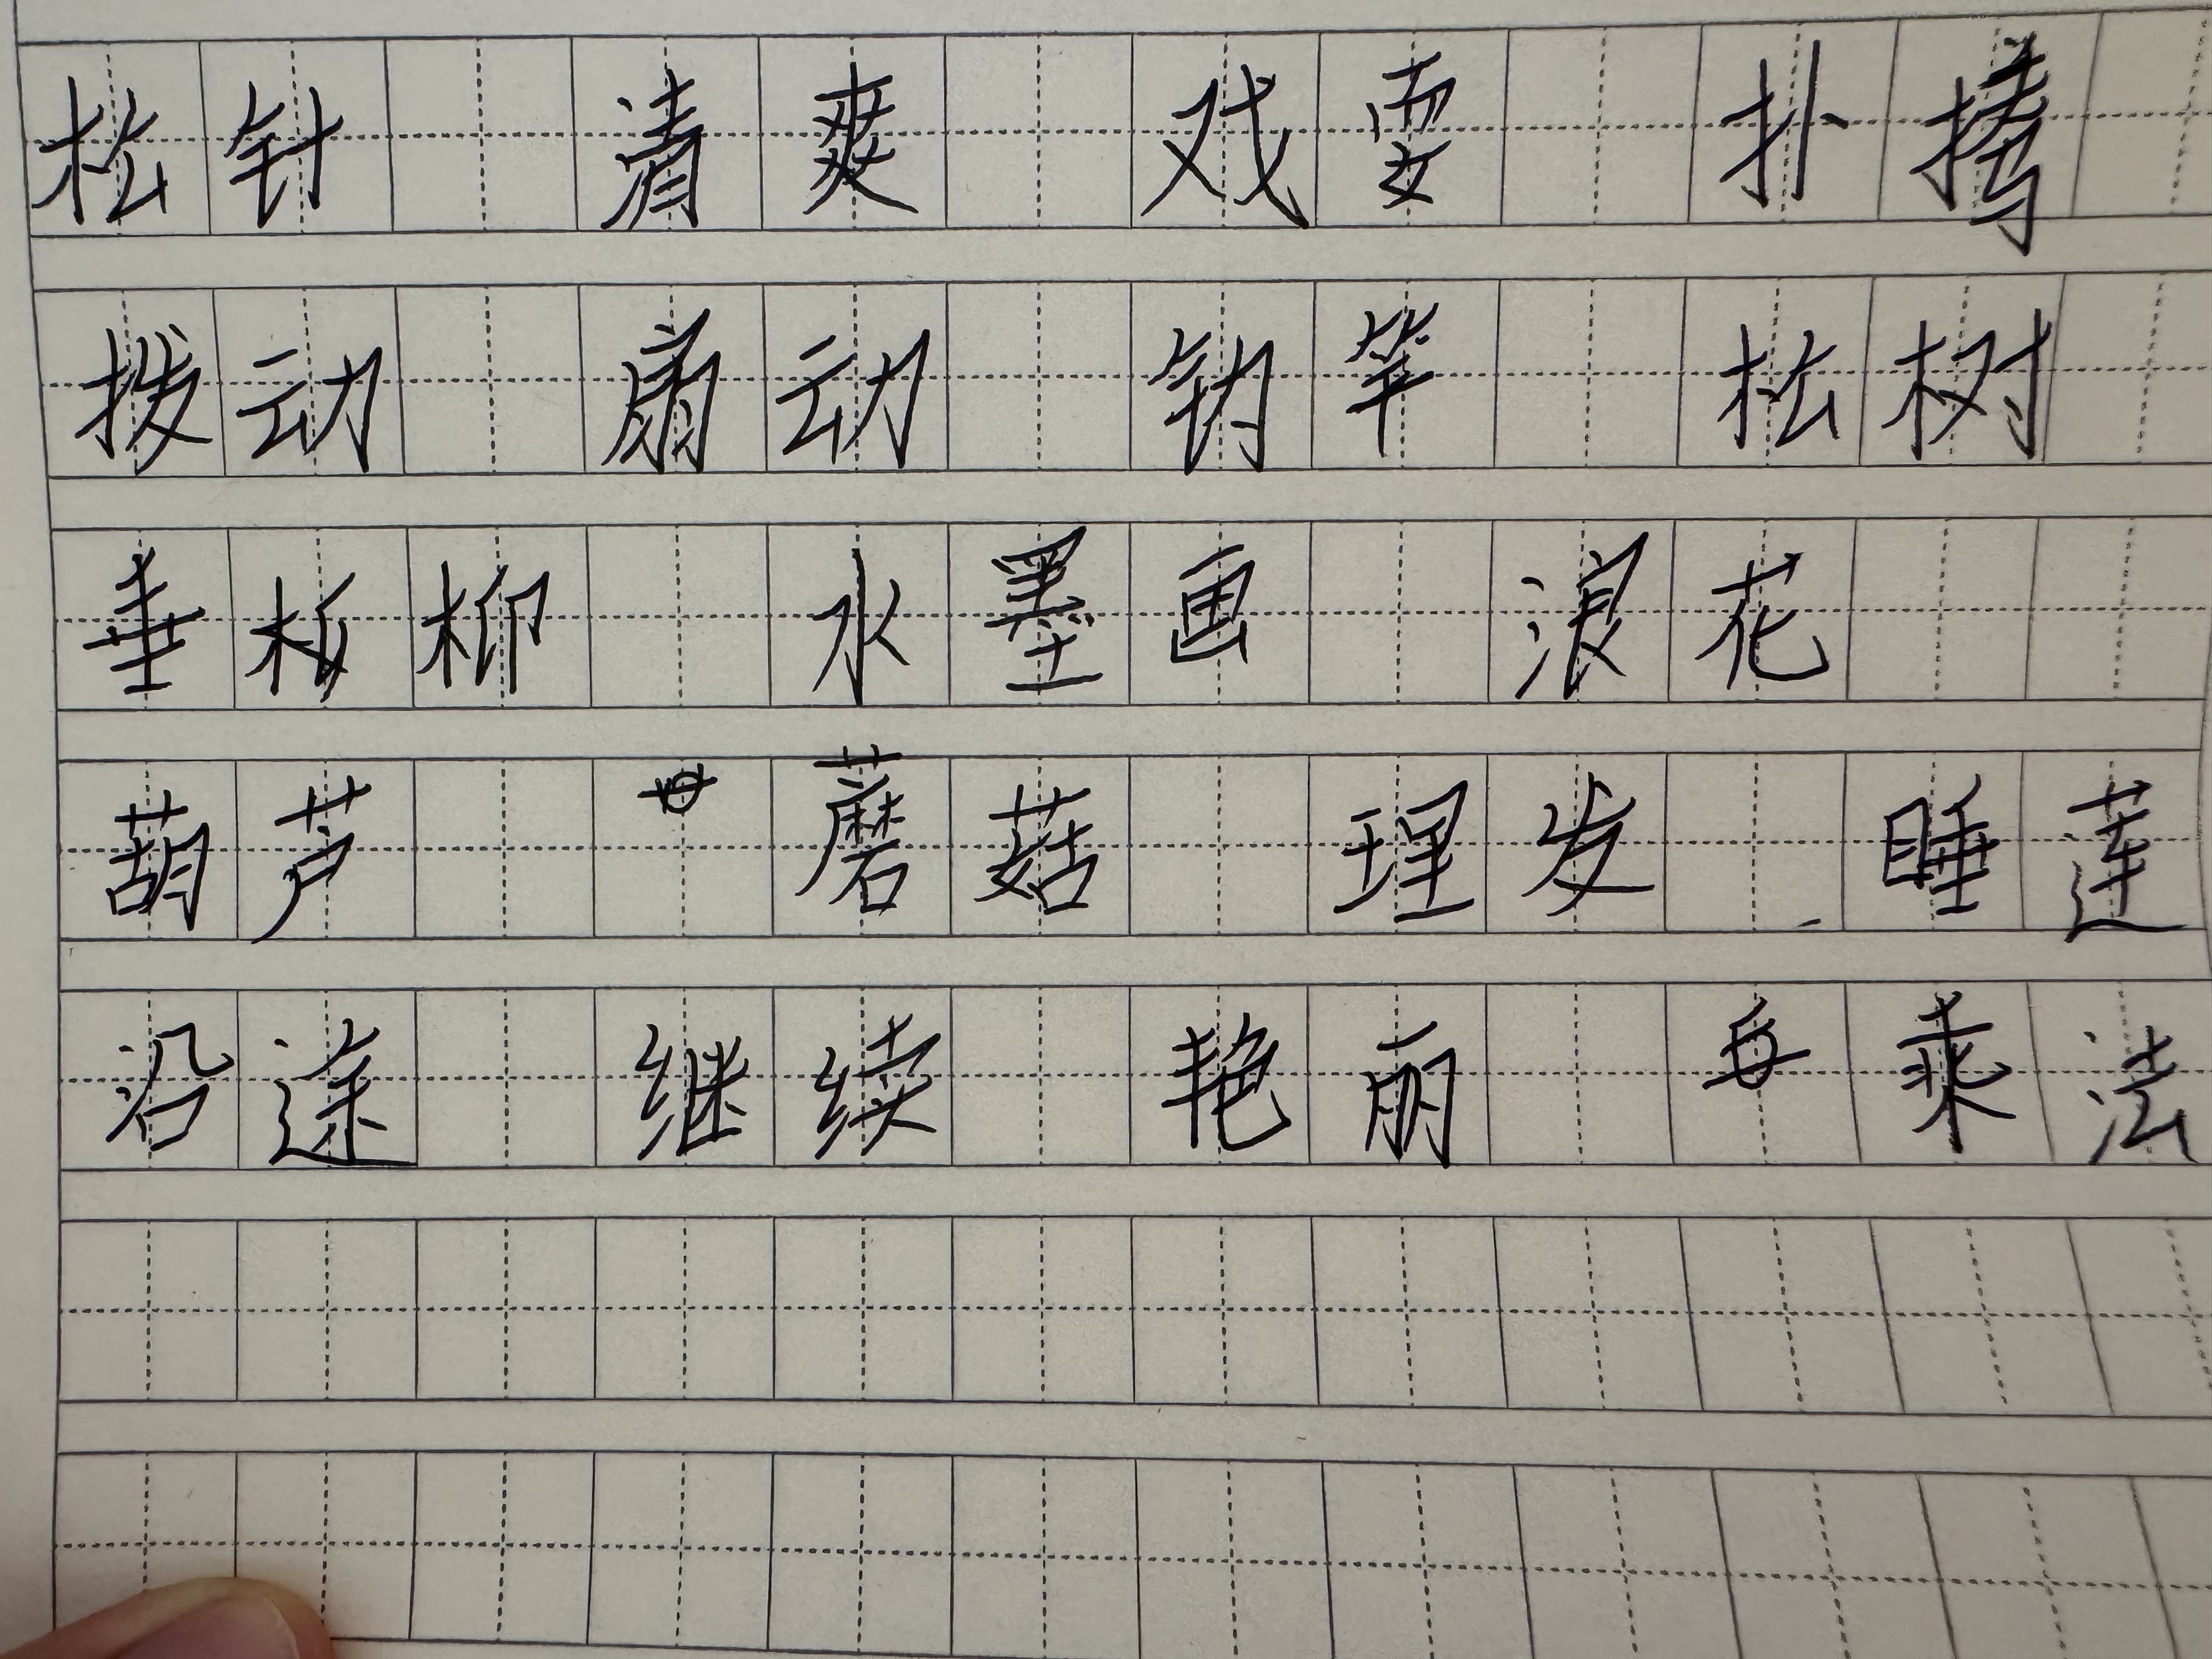 松针 清爽 戏耍 扑
拨动 扇动 钓竿 松树
垂柳 水墨画 浪花
葫芦 蘑菇 理发 睡莲
沿途 继续 艳丽 乘法